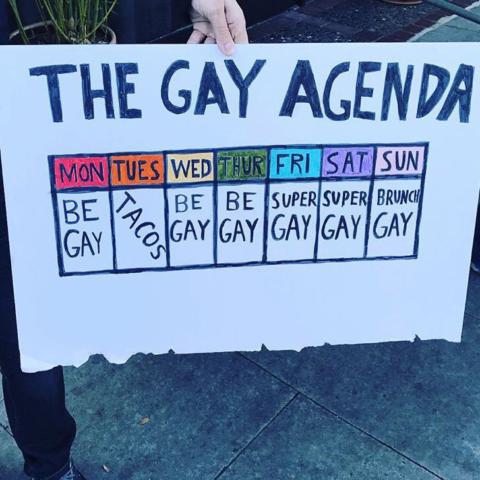 THE GAY AGENDA
MON TUES WED THUR FRI SAT SUN
BE GAY
TACOS
BE GAY
BE GAY
SUPER GAY
SUPER GAY
BRUNCH GAY